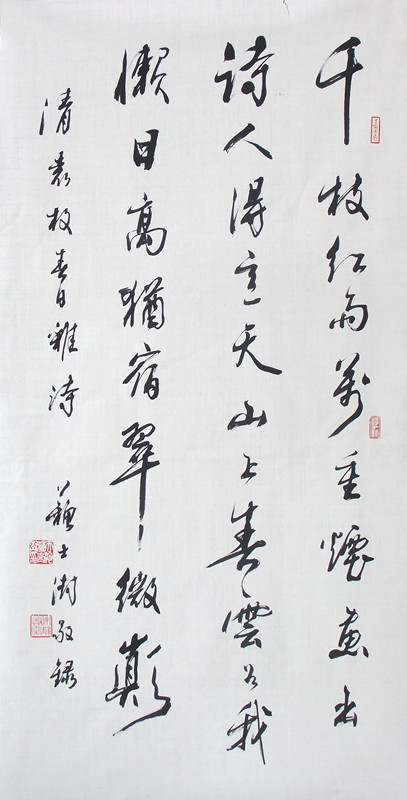 千枝红雨万重烟画出
诗人得意天山上春云如我
懒日高犹宿翠微巅
清袁枚春日杂诗
苏士澍敬录